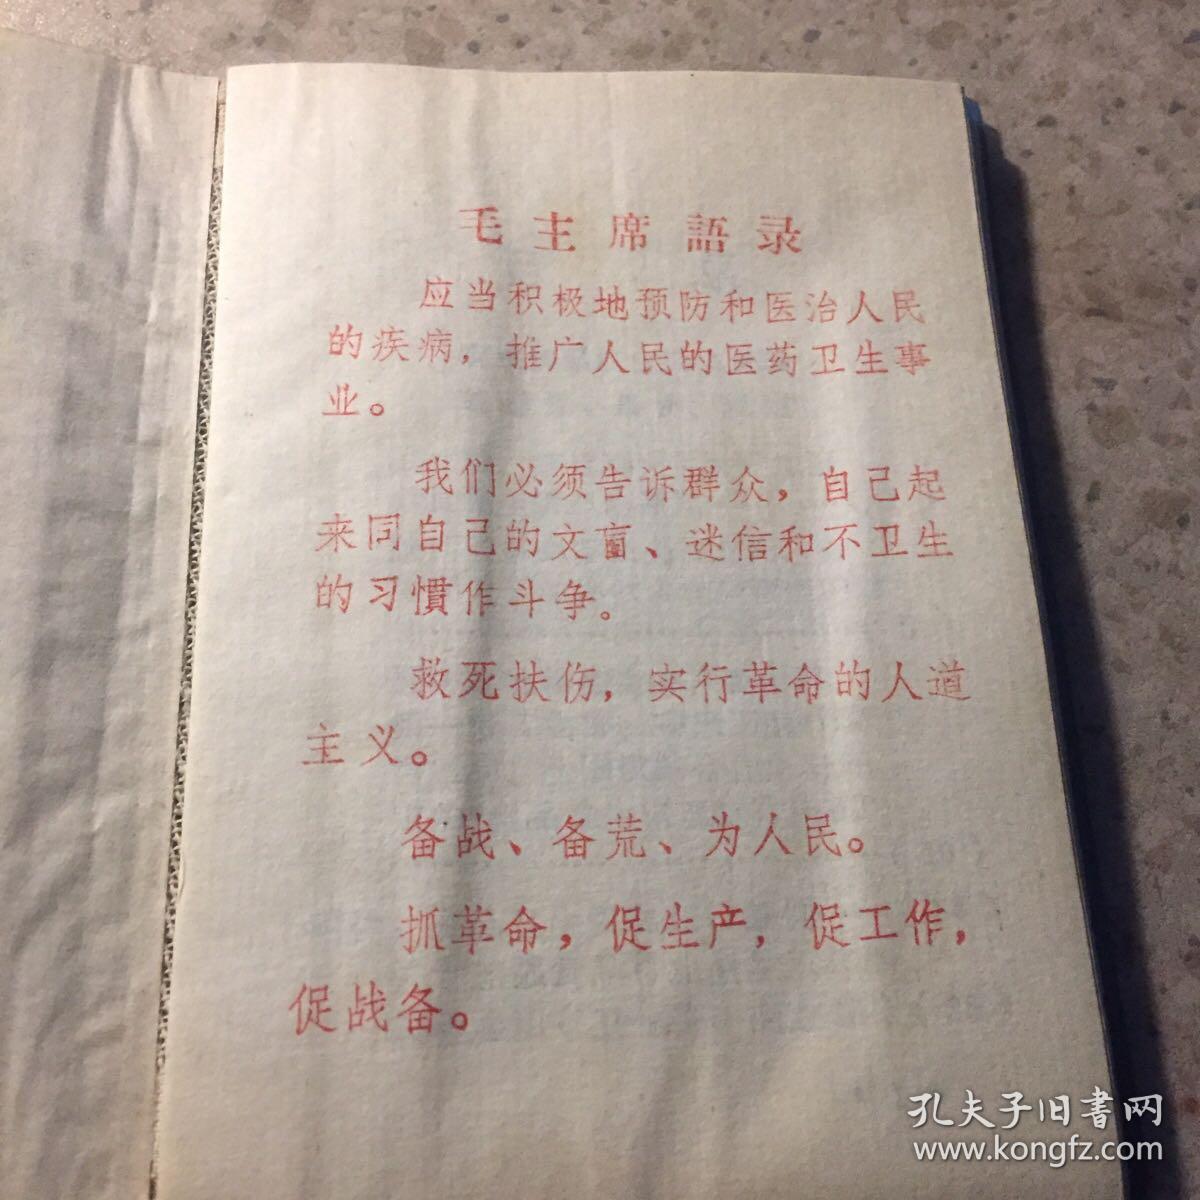 毛主席語录
应当积极地预防和医治人民
的疾病，推广人民的医药卫生事
业。
我们必须告诉群众，自己起
来同自己的文盲、迷信和不卫生
的习慣作斗争。
救死扶伤，实行革命的人道
主义。
备战、备荒、为人民。
抓革命，促生产，促工作，
促战备。
孔夫子旧書网
www.kongfz.com